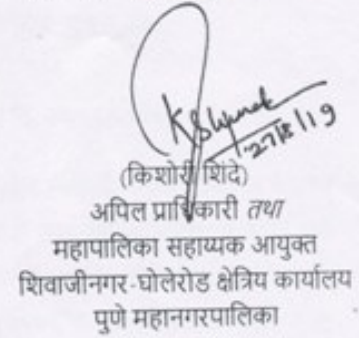 27/8/19
(किशोरी शिंदे)
अपिल प्राधिकारी तथा
महापालिका सहाय्यक आयुक्त
शिवाजीनगर-घोलेरोड क्षेत्रिय कार्यालय
पुणे महानगरपालिका